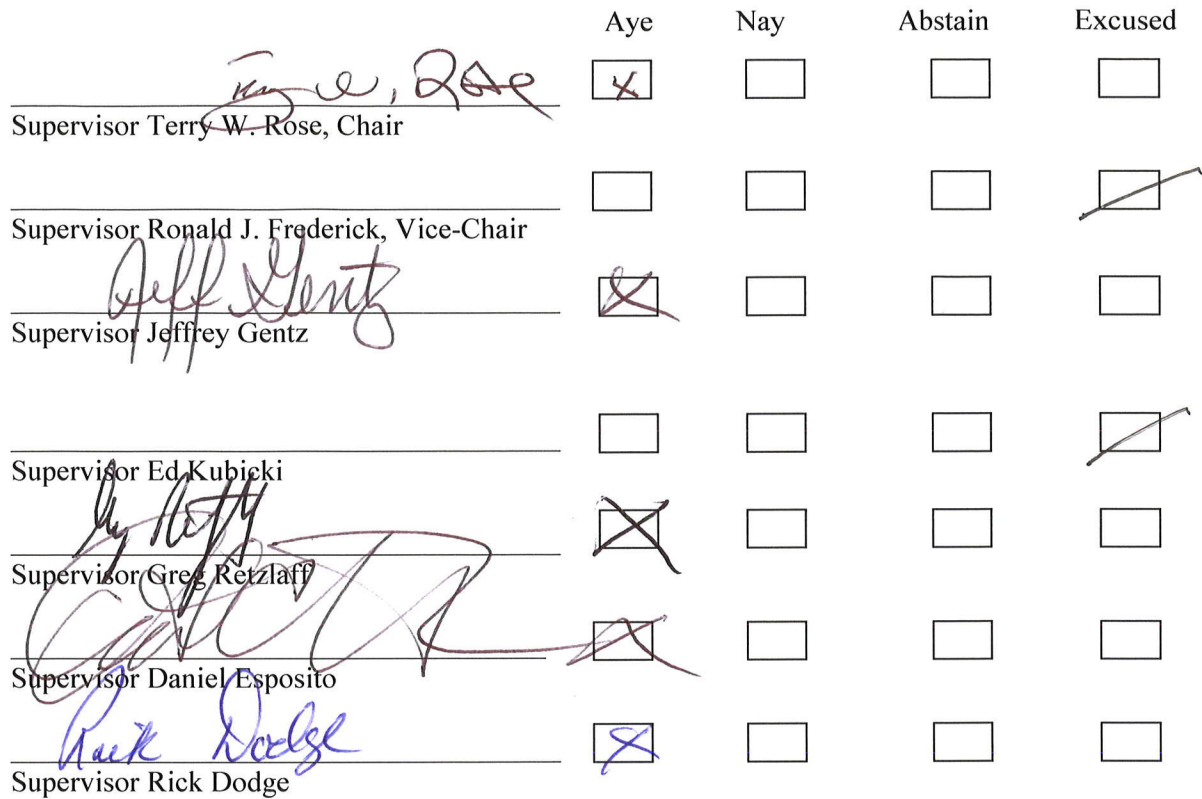 Aye Nay Abstain Excused
Terry W. Rose
Supervisor Terry W. Rose, Chair
Supervisor Ronald J. Frederick, Vice-Chair
Jeff Gentz
Supervisor Jeffrey Gentz
Supervisor Ed Kubicki
Supervisor Greg Retzlaff
Supervisor Daniel Esposito
Rick Dodge
Supervisor Rick Dodge